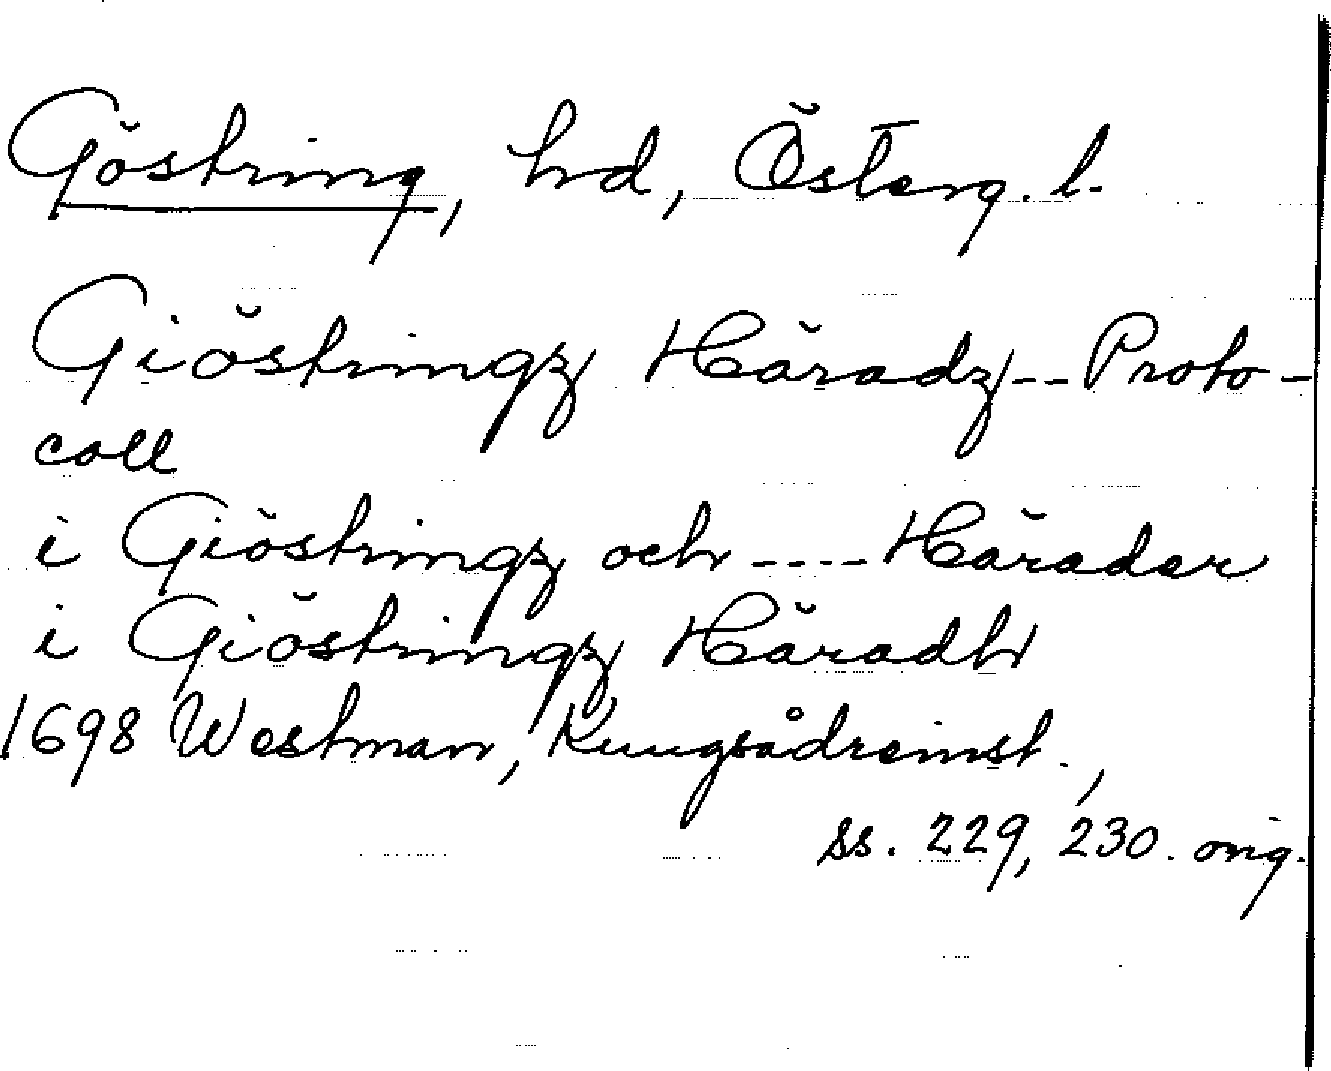 Göstring, hd, Österg. l.
Giöstringz Häradz -- Proto-
coll
i Giöstringz och ---- Härader
i Giöstringz Häradh
1698 Westman, Kungsådreinst.,
ss. 229, 230. orig.